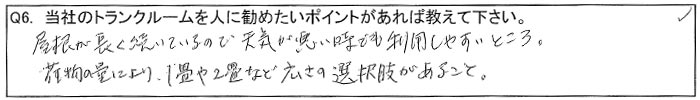 Q6. 当社のトランクルームを人に勧めたいポイントがあれば教えて下さい。
屋根が長く続いているので天気が悪い時でも利用しやすいところ。
荷物の量により、1畳や2畳など広さの選択肢があること。